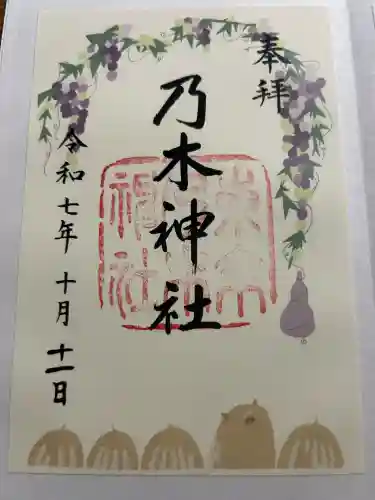 奉拝
乃木神社
令和七年十月十一日